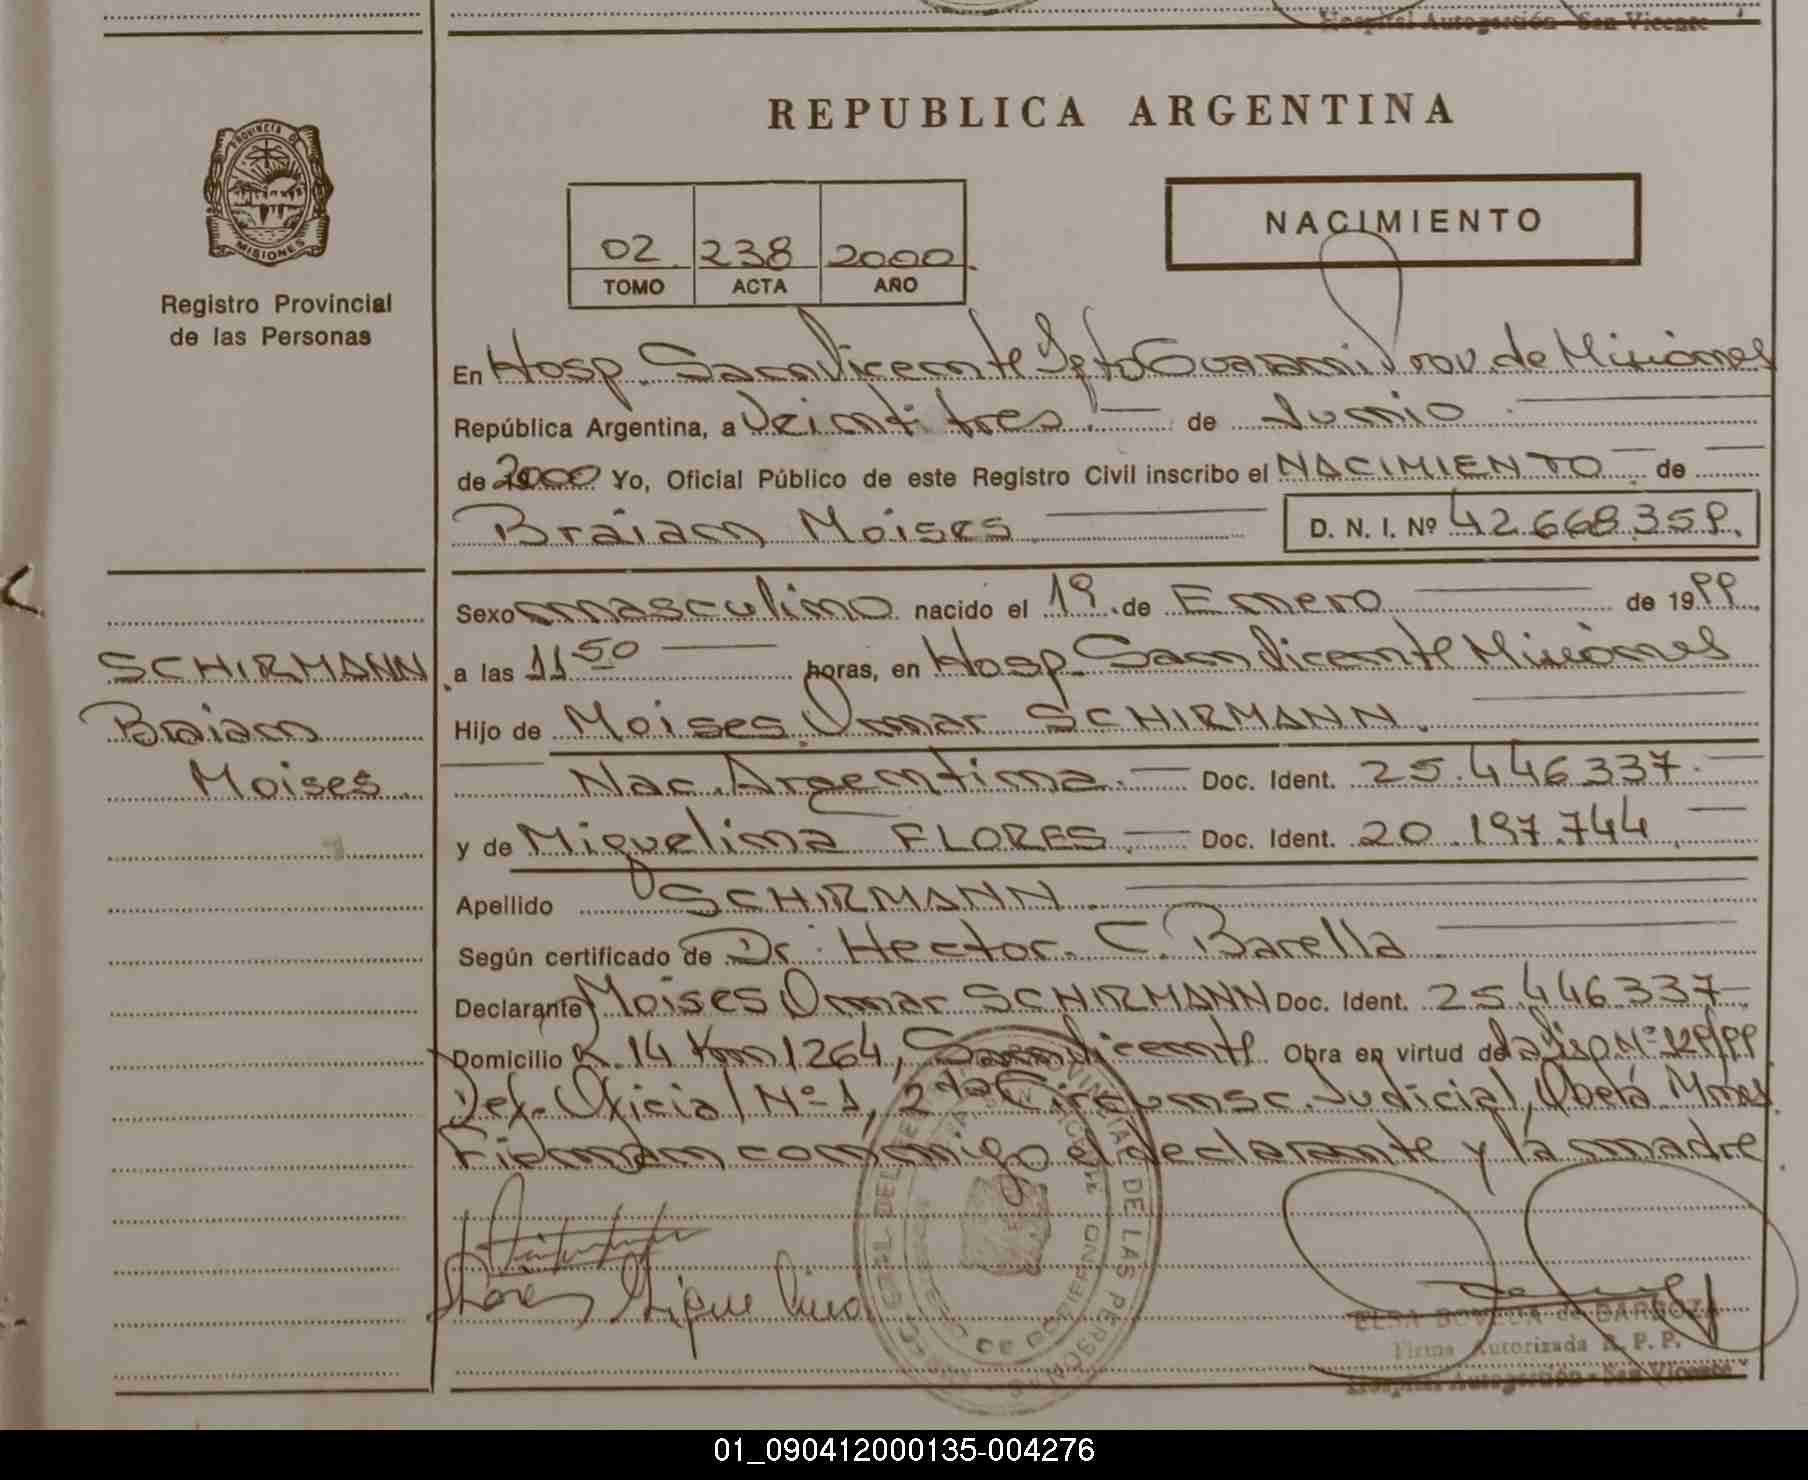 Hospital Autogestión - San Vicente
REPUBLICA ARGENTINA
PROVINCIA DE
MISIONES
Registro Provincial
de las Personas
NACIMIENTO
02 238 2000
TOMO ACTA AÑO
En Hosp. San Vicente Dpto Guarani Prov. de Misiones
República Argentina, a Veintitres de Junio
de 2000 Yo, Oficial Público de este Registro Civil inscribo el NACIMIENTO de
Braian Moises D. N. I. Nº 42.668.359.
Sexo masculino nacido el 19 de Enero de 1999
SCHIRMANN
Braian
Moises
a las 11 50 horas, en Hosp. San Vicente Misiones
Hijo de Moises Omar SCHIRMANN.
Nac. Argentina. Doc. Ident. 25.446337.
y de Miguelina FLORES. Doc. Ident. 20.197.744
Apellido SCHIRMANN
Según certificado de Dr. Hector. C. Barella
Declarante Moises Omar SCHIRMANN Doc. Ident. 25.446337
Domicilio R. 14 Km 1264, San Vicente Obra en virtud de la Disp. Nº 129/99
Def. Oficial Nº 1, 2da Circunsc. Judicial, Oberá Mnes.
Firman conmigo el declarante y la madre
Flores Miguelina
ELSA de BARBOZA
Firma Autorizada R. P. P.
Hospital Autogestión - San Vicente
01_090412000135-004276